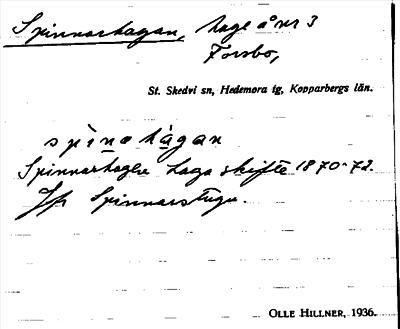 Spinnarhagan, hage å nr 3
Forsbo,
St. Skedvi sn, Hedemora tg, Kopparbergs län.
spìnahàgan
Spinnarhagen Laga skifte 1870-72.
Jfr Spinnarstugu.
OLLE HILLNER, 1936.